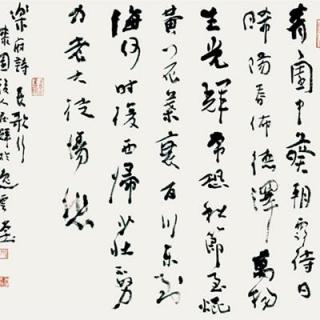 青園中葵朝露待日
晞陽春佈德澤萬物
生光輝常恐秋節至焜
黃花葉衰百川東到
海何时復西歸少壮不努
力老大徒傷悲
樂府詩長歌行